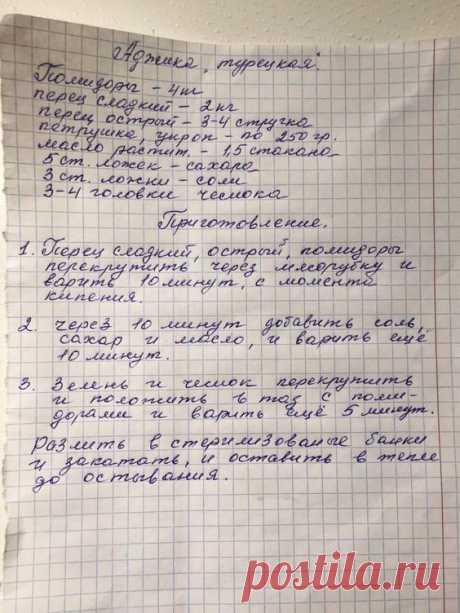 Аджика, турецкая.
Помидоры – 4кг
перец сладкий – 2 кг
перец острый – 3-4 стручка
петрушка, укроп – по 250 гр.
масло растит. – 1,5 стакана
5 ст. ложек – сахара
3 ст. ложки – соли
3-4 головки чеснока
Приготовление.
1. Перец сладкий, острый, помидоры
перекрутить через мясорубку и
варить 10 минут, с момента
кипения.
2. через 10 минут добавить соль,
сахар и масло, и варить ещё
10 минут.
3. Зелень и чеснок перекрутить
и положить в таз с поми-
дорами и варить ещё 5 минут.
Разлить в стерилизованые банки
и закатать, и оставить в тепле
до остывания.
postila.ru